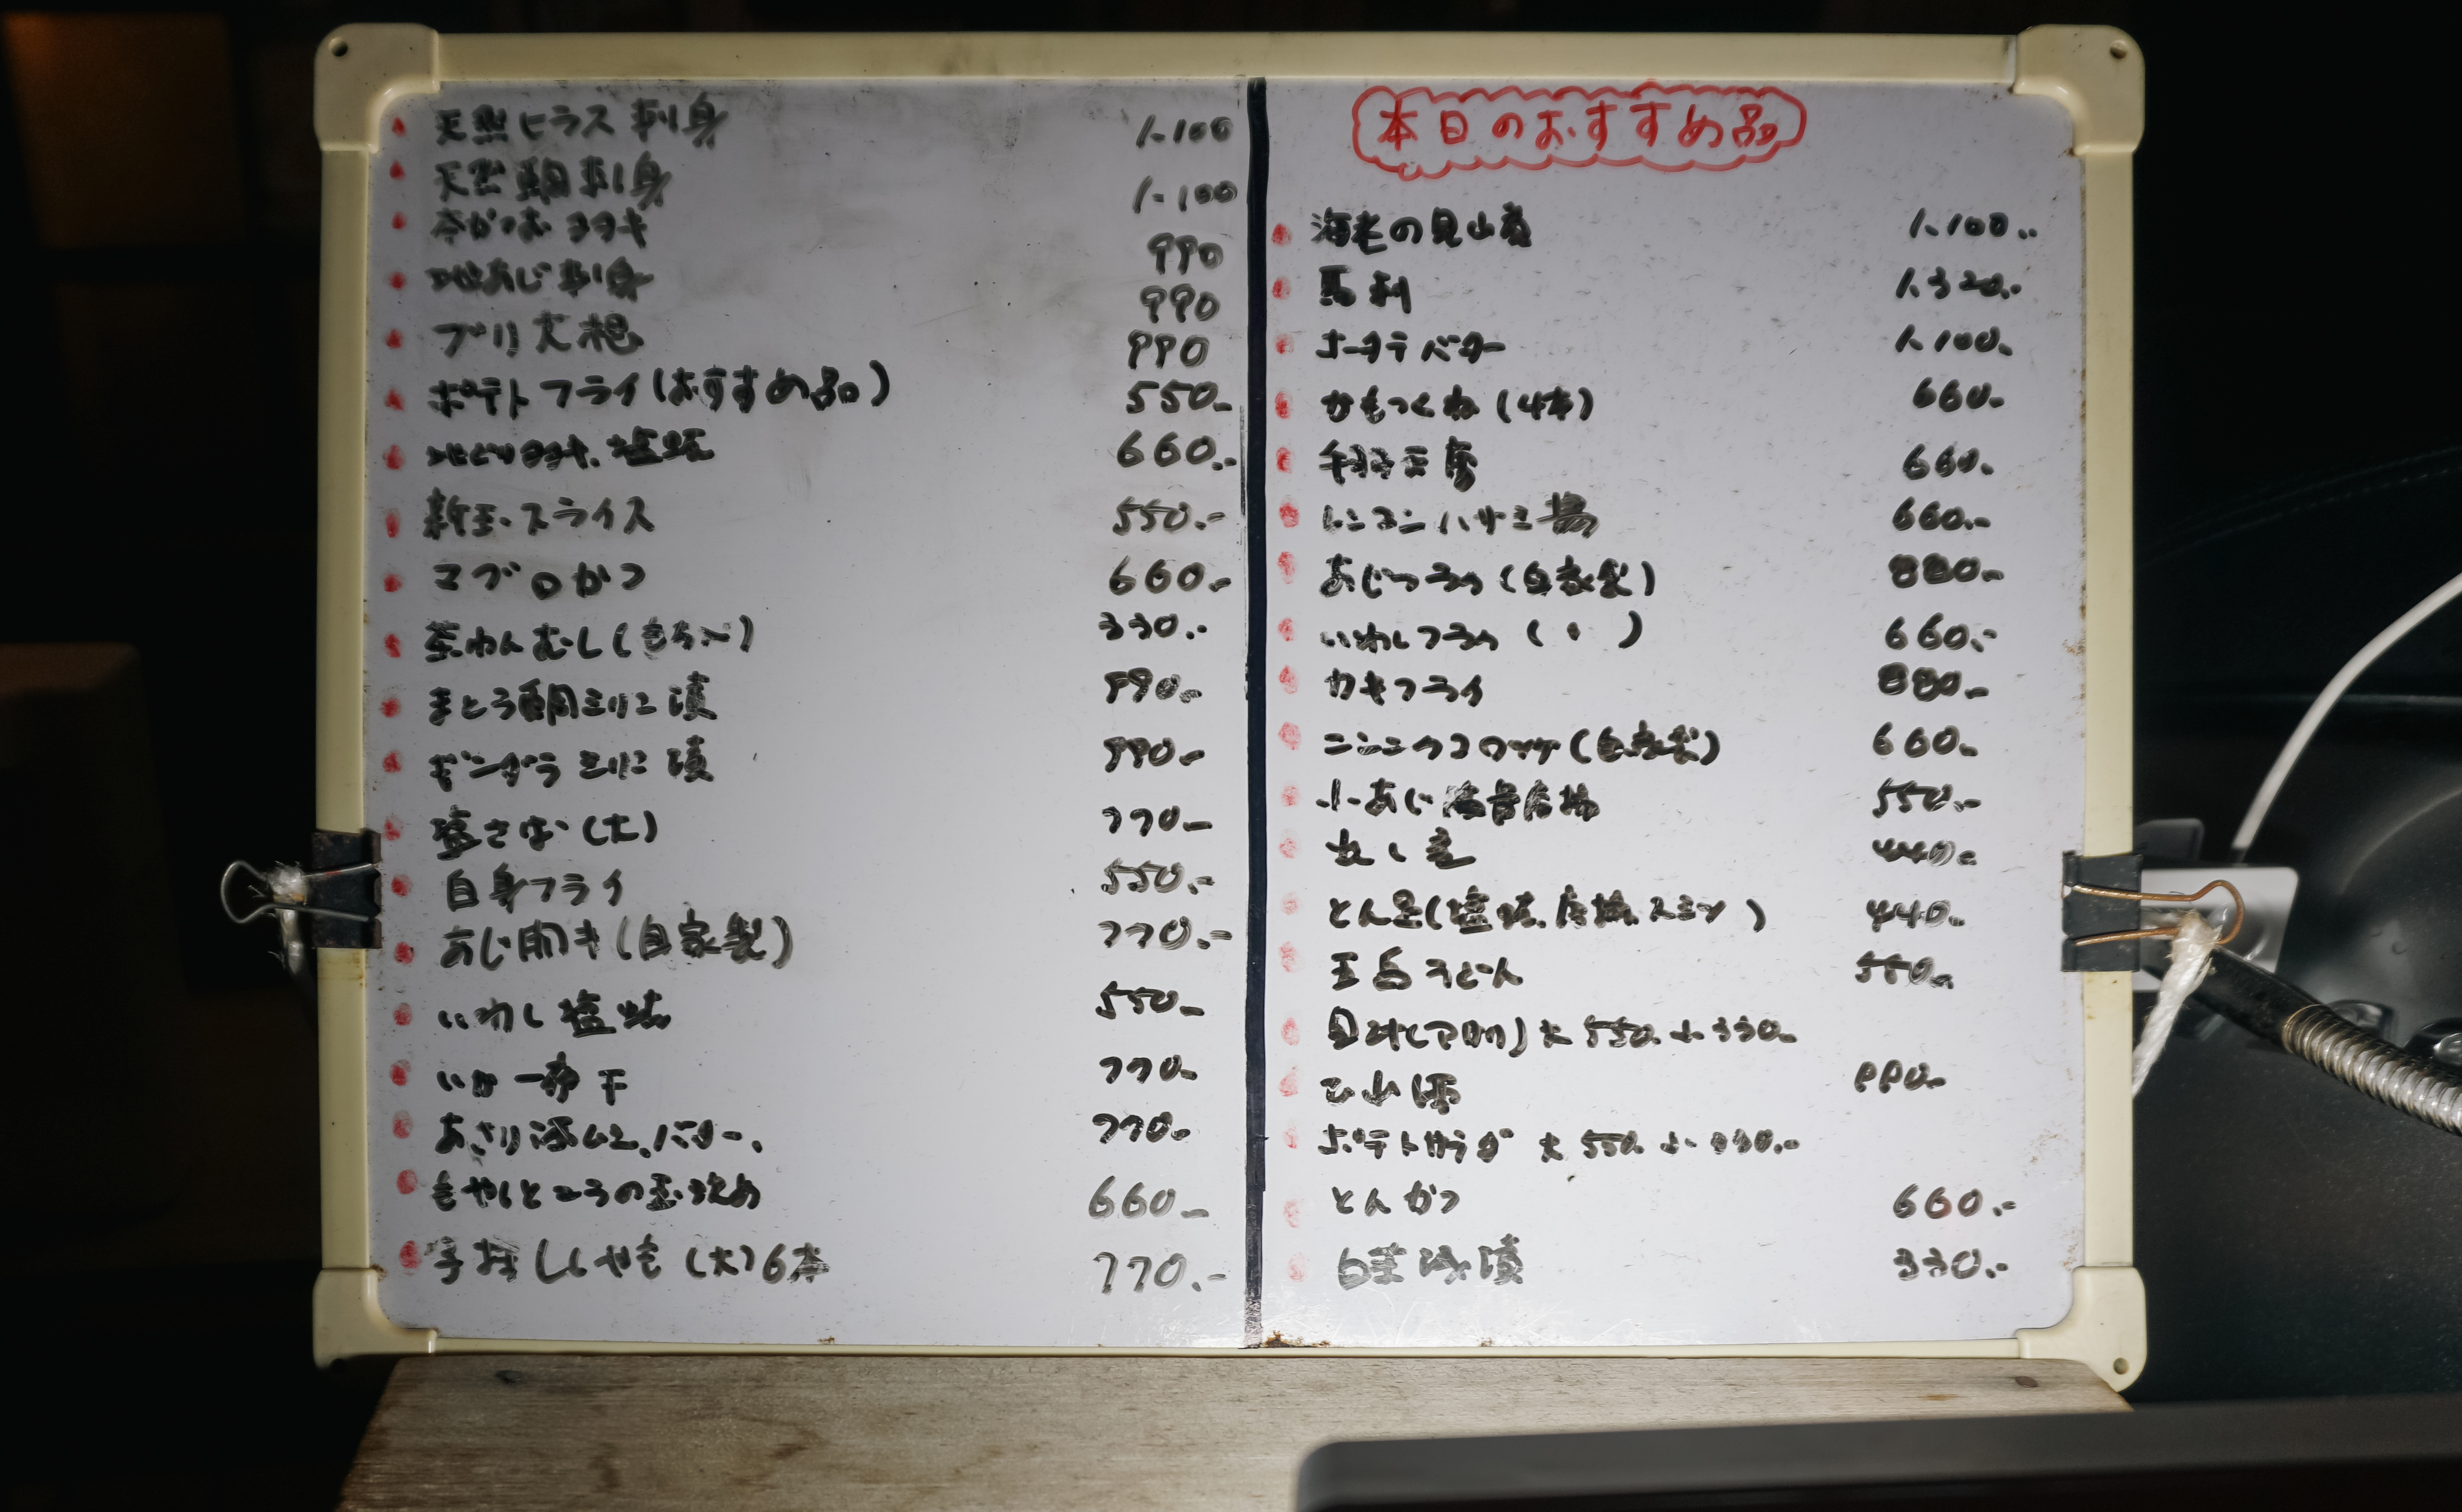 天然ヒラス刺身 1.100
天然鯛刺身 1.100
タタキ 990
地あじ刺身 990
ブリ大根 990
ポテトフライ(おすすめ品) 550.-
地どりタタキ.塩焼 660.-
新玉.スライス 550.-
マグロかつ 660.-
茶わんむし(もち入) 330.-
まとう鯛ミリン漬 990.-
ギンダラミリン漬 990.-
塩さば(大) 770.-
白身フライ 550.-
あじ開き(自家製) 770.-
いわし塩焼 550.-
いか一夜干 770.-
あさり酒ムシ.バター. 770.-
もやしとニラの玉.炒め 660.-
子持ししゃも(大)6本 770.-
本日のおすすめ品
海老の 1.100.-
馬刺 1.320.-
ホータテバター 1.100.
かもつくね(4本) 660.-
手羽 660.-
レンコンハサミ揚 660.-
あじフライ(自家製) 880.-
いわしフライ(〃) 660.-
カキフライ 880.-
ニンニクコロッケ(自家製) 660.-
小あじ 550.-
440.-
とん足(塩焼.唐揚.スミソ) 440.-
五島うどん 550.-
大550.小330.-
990.-
ポテトサラダ 大550.小330.-
とんかつ 660.-
白菜浅漬 330.-